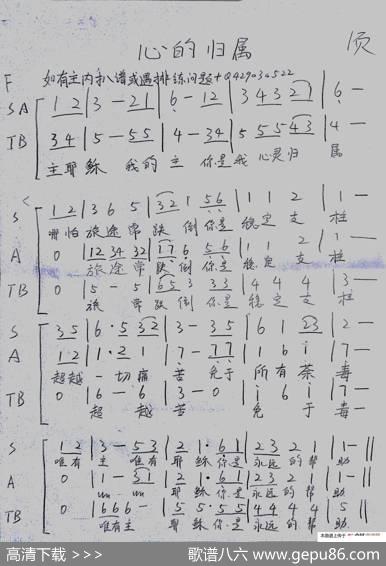 心的归属 颂
F 如有主内扒谱或遇排练问题+Q429030522
SA 1 2 | 3 — 2 1 | 6 — 1 2 | 3 4 3 2 1 | 6 —
TB 3 4 | 5 — 5 5 | 4 — 3 4 | 5 5 5 4 3 | 4 —
主耶稣 我的主 你是我心灵归属
S 1 2 | 3 6 5 | 3 2 1 5 6 | 1 1 2 | 1 —
哪怕旅途常跌倒 你是稳定支柱
A 0 | 12 34 32 | 17 6 5 6 | 1 1 2 | 1 —
旅途常跌倒 你是稳定支柱
TB 0 | 5 — 5 | 6 5 3 3 3 | 4 4 4 | 3 —
旅 常跌倒 你是稳定支柱
S 3 5 | 6 · 5 3 2 | 3 — 3 5 | 6 1 2 3 | 2 —
A 1 2 | 1 · 2 1 | 7 — 7 7 | 1 6 1 | 7 —
超越一切痛苦 免于所有荼毒
TB 0 | 6 — 6 | 3 — 0 | 1 6 1 | 7 —
超越苦 免于毒
S 1 2 | 3 — 5 3 | 2 1 · 6 1 | 2 3 2 1 | 1 — ||
唯有主 唯有耶稣你是永远的帮助
A 0 | 1 — 5 1 | 2 1 · 6 1 | 2 3 2 1 | 1 — ||
耶稣你是永远的帮助
TB 0 | 1 6 6 6 — | 5 · 5 5 5 | 4 4 4 4 | 5 ||
唯有主 耶稣你是永远的帮助
本曲谱上传于
高清下载 >>> 歌谱八六 www.gepu86.com